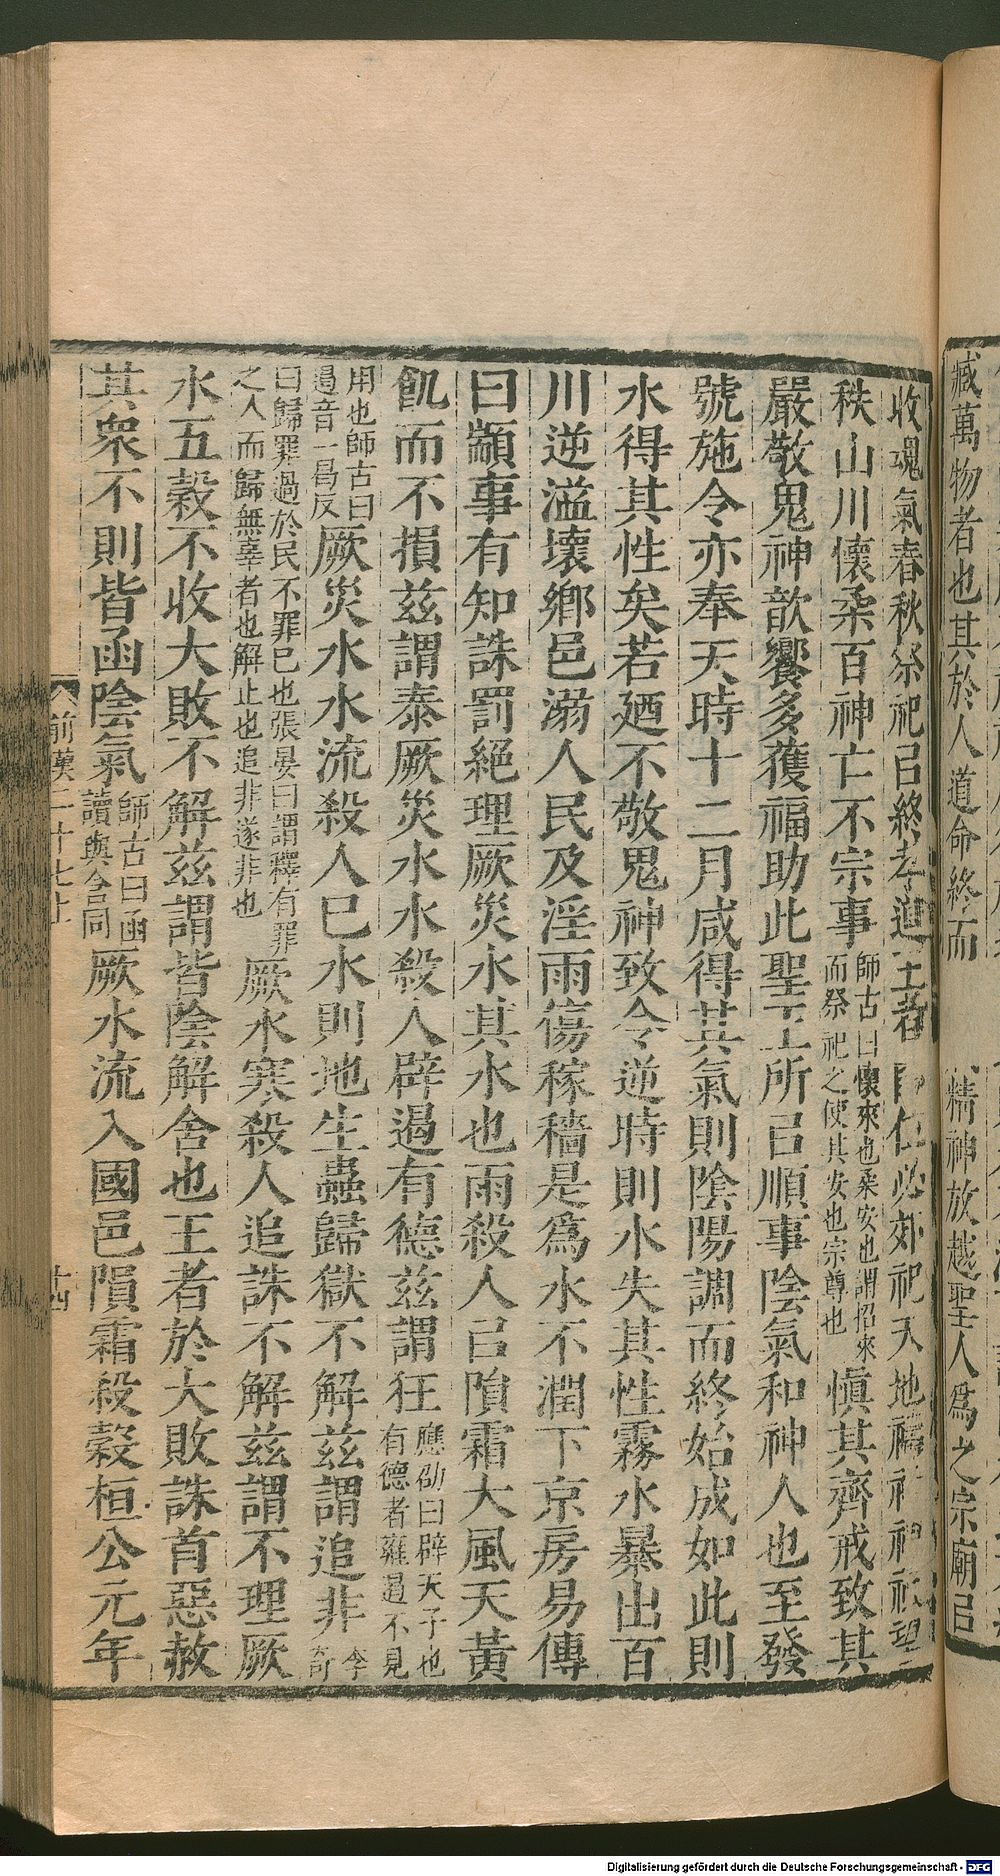 臧萬物者也其於人道命終而
精神放越聖人爲之宗廟㠯
收魂氣春秋祭祀㠯終孝道王者卽位必郊祀天地禱祈神祇望
秩山川懷柔百神亡不宗事師古曰懷來也柔安也謂招來而祭祀之使其安也宗尊也愼其齊戒致其
嚴敬鬼神歆饗多獲福助此聖王所㠯順事陰氣和神人也至發
號施令亦奉天時十二月咸得其氣則陰陽調而終始成如此則
水得其性矣若廼不敬鬼神致令逆時則水失其性霧水暴出百
川逆溢壞鄉邑溺人民及淫雨傷稼穡是爲水不潤下京房易傳
曰顓事有知誅罰絕理厥災水其水也雨殺人㠯隕霜大風天黃
飢而不損茲謂泰厥災水水殺人辟遏有德茲謂狂應劭曰辟天子也有德者雍遏不見
用也師古曰遏音一曷反厥災水水流殺人已水則地生蟲歸獄不解茲謂追非李奇
曰歸罪過於民不罪已也張晏曰謂釋有罪之人而歸無辜者也解止也追非遂非也厥水寒殺人追誅不解茲謂不理厥
水五穀不收大敗不解茲謂皆陰解舍也王者於大敗誅首惡赦
其衆不則皆函陰氣師古曰函讀與含同厥水流入國邑隕霜殺穀桓公元年
前漢二十七上
十四
Digitalisierung gefördert durch die Deutsche Forschungsgemeinschaft - DFG